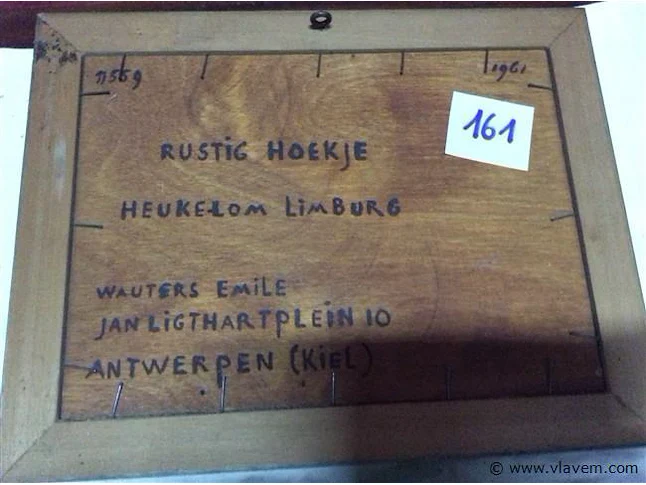 1961
161
RUSTIG HOEKJE
HEUKELOM LIMBURG
WAUTERS EMILE
JAN LIGTHARTPLEIN 10
ANTWERPEN (KIEL)
© www.vlavem.com